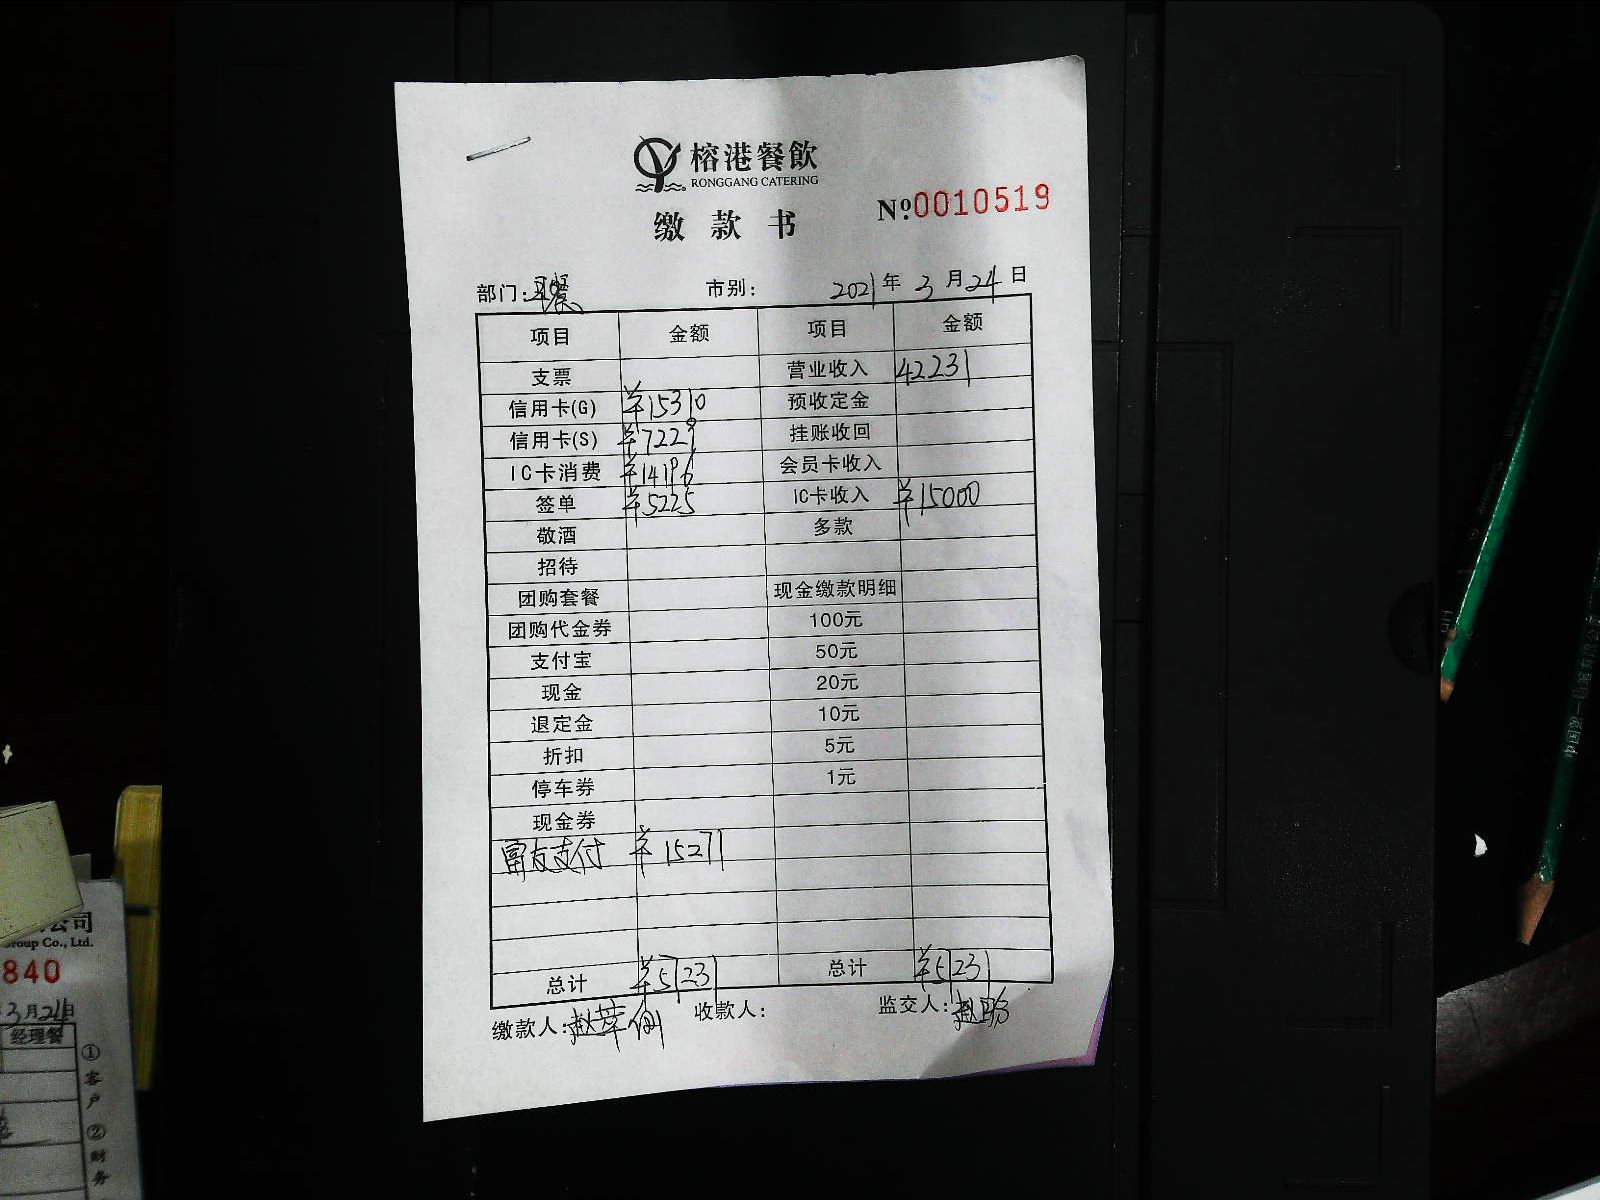 榕港餐飲
RONGGANG CATERING
缴款书
Nº0010519
部门: 市别: 2021年3月24日
项目 金额 项目 金额
支票 营业收入 42231
信用卡(G) ¥15310 预收定金
信用卡(S) ¥7229 挂账收回
IC卡消费 ¥14196 会员卡收入
签单 ¥5225 IC卡收入 ¥15000
敬酒 多款
招待
团购套餐 现金缴款明细
团购代金券 100元
支付宝 50元
现金 20元
退定金 10元
折扣 5元
停车券 1元
现金券
富友支付 ¥15271
总计 ¥57231 总计 ¥57231
缴款人: 收款人: 监交人:
公司
Group Co., Ltd.
840
3月24日
经理餐
①
客
户
②
财
务
中国第一铅笔有限公